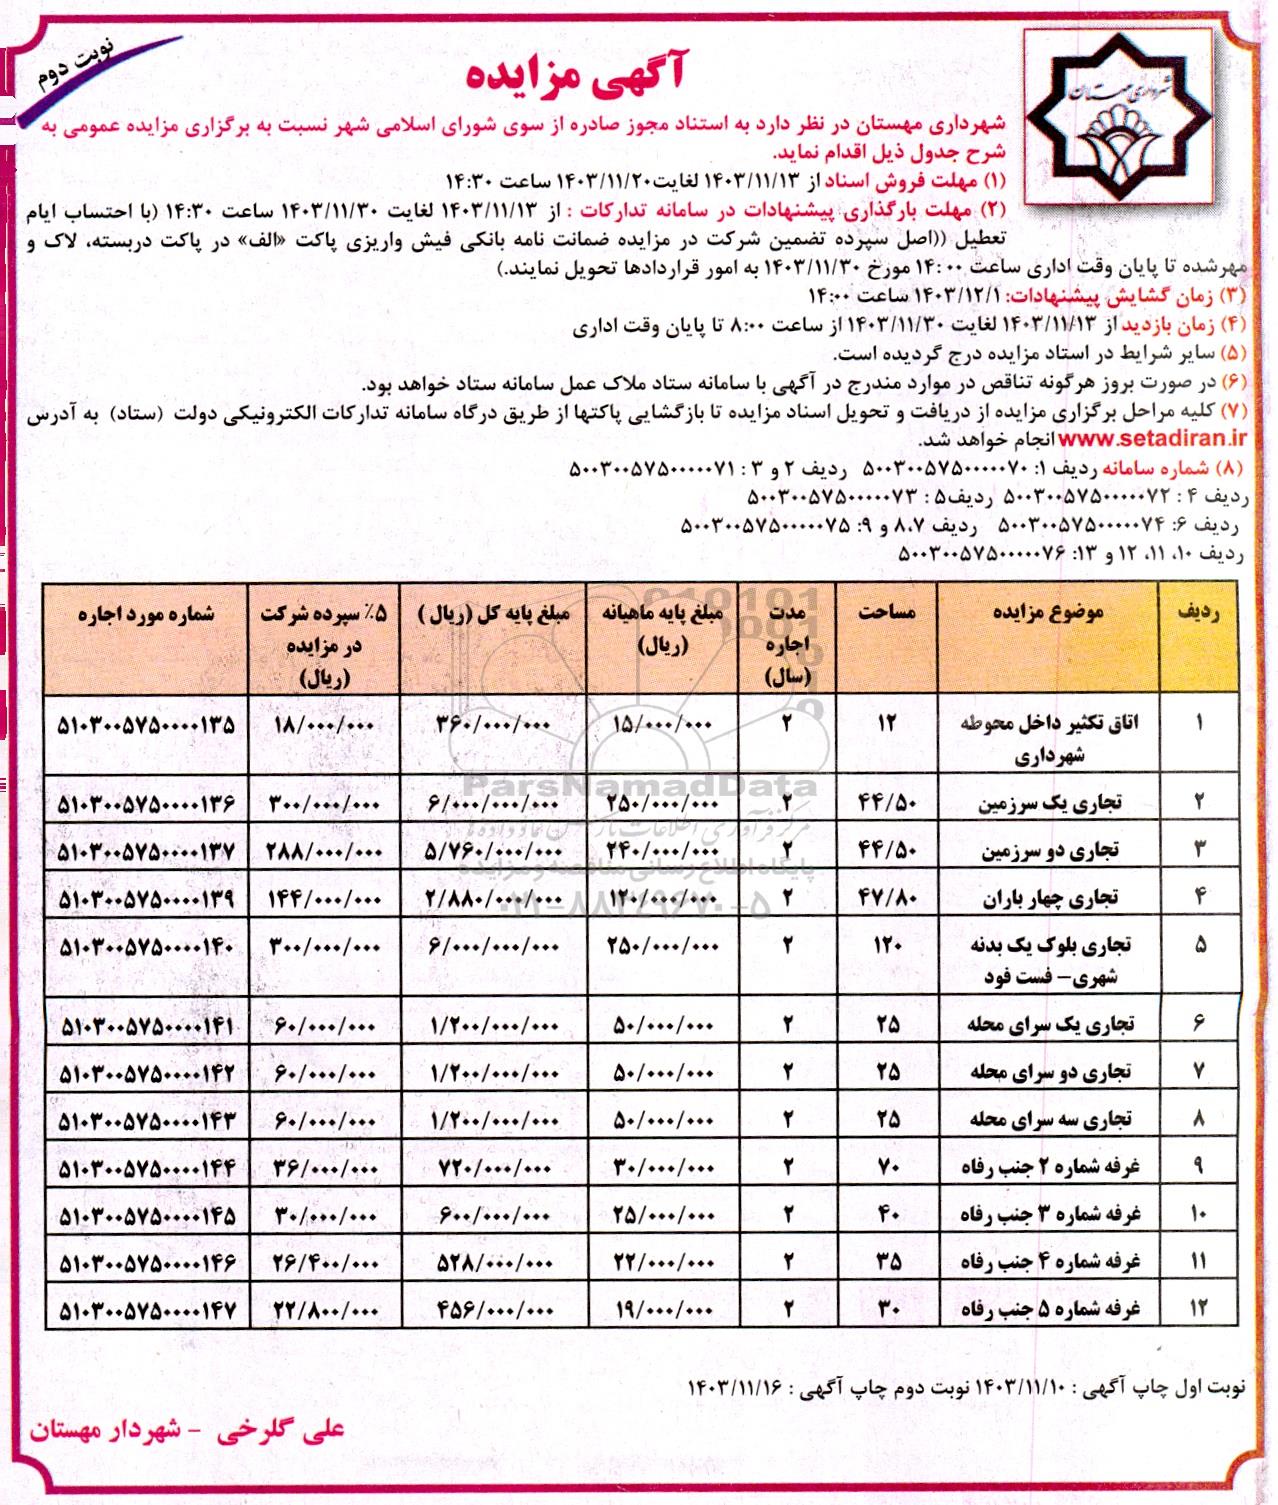 نوبت دوم
شهرداری مهستان
آگهی مزایده
شهرداری مهستان در نظر دارد به استناد مجوز صادره از سوی شورای اسلامی شهر نسبت به برگزاری مزایده عمومی به
شرح جدول ذیل اقدام نماید.
(۱) مهلت فروش اسناد از ۱۴۰۳/۱۱/۱۳ لغایت ۱۴۰۳/۱۱/۲۰ ساعت ۱۴:۳۰
(۲) مهلت بارگذاری پیشنهادات در سامانه تدارکات : از ۱۴۰۳/۱۱/۱۳ لغایت ۱۴۰۳/۱۱/۳۰ ساعت ۱۴:۳۰ (با احتساب ایام
تعطیل ((اصل سپرده تضمین شرکت در مزایده ضمانت نامه بانکی فیش واریزی پاکت «الف» در پاکت دربسته، لاک و
مهرشده تا پایان وقت اداری ساعت ۱۴:۰۰ مورخ ۱۴۰۳/۱۱/۳۰ به امور قراردادها تحویل نمایند.)
(۳) زمان گشایش پیشنهادات: ۱۴۰۳/۱۲/۱ ساعت ۱۴:۰۰
(۴) زمان بازدید از ۱۴۰۳/۱۱/۱۳ لغایت ۱۴۰۳/۱۱/۳۰ از ساعت ۸:۰۰ تا پایان وقت اداری
(۵) سایر شرایط در استاد مزایده درج گردیده است.
(۶) در صورت بروز هرگونه تناقص در موارد مندرج در آگهی با سامانه ستاد ملاک عمل سامانه ستاد خواهد بود.
(۷) کلیه مراحل برگزاری مزایده از دریافت و تحویل اسناد مزایده تا بازگشایی پاکتها از طریق درگاه سامانه تدارکات الکترونیکی دولت (ستاد) به آدرس
www.setadiran.ir انجام خواهد شد.
(۸) شماره سامانه ردیف ۱: ۵۰۰۳۰۰۵۷۵۰۰۰۰۰۷۰ ردیف ۲ و ۳ : ۵۰۰۳۰۰۵۷۵۰۰۰۰۰۷۱
ردیف ۴ : ۵۰۰۳۰۰۵۷۵۰۰۰۰۰۷۲ ردیف۵ : ۵۰۰۳۰۰۵۷۵۰۰۰۰۰۷۳
ردیف ۶: ۵۰۰۳۰۰۵۷۵۰۰۰۰۰۷۴ ردیف ۸،۷ و ۹: ۵۰۰۳۰۰۵۷۵۰۰۰۰۰۷۵
ردیف ۱۰، ۱۱، ۱۲ و ۱۳: ۵۰۰۳۰۰۵۷۵۰۰۰۰۰۷۶
ردیف موضوع مزایده مساحت مدت اجاره (سال) مبلغ پایه ماهیانه (ریال) مبلغ پایه کل (ریال ) ۵٪ سپرده شرکت در مزایده (ریال) شماره مورد اجاره
۱ اتاق تکثیر داخل محوطه شهرداری ۱۲ ۲ ۱۵/۰۰۰/۰۰۰ ۳۶۰/۰۰۰/۰۰۰ ۱۸/۰۰۰/۰۰۰ ۵۱۰۳۰۰۵۷۵۰۰۰۰۱۳۵
۲ تجاری یک سرزمین ۴۴/۵۰ ۲ ۲۵۰/۰۰۰/۰۰۰ ۶/۰۰۰/۰۰۰/۰۰۰ ۳۰۰/۰۰۰/۰۰۰ ۵۱۰۳۰۰۵۷۵۰۰۰۰۱۳۶
۳ تجاری دو سرزمین ۴۴/۵۰ ۲ ۲۴۰/۰۰۰/۰۰۰ ۵/۷۶۰/۰۰۰/۰۰۰ ۲۸۸/۰۰۰/۰۰۰ ۵۱۰۳۰۰۵۷۵۰۰۰۰۱۳۷
۴ تجاری چهار باران ۴۷/۸۰ ۲ ۱۲۰/۰۰۰/۰۰۰ ۲/۸۸۰/۰۰۰/۰۰۰ ۱۴۴/۰۰۰/۰۰۰ ۵۱۰۳۰۰۵۷۵۰۰۰۰۱۳۹
۵ تجاری بلوک یک بدنه شهری- فست فود ۱۲۰ ۲ ۲۵۰/۰۰۰/۰۰۰ ۶/۰۰۰/۰۰۰/۰۰۰ ۳۰۰/۰۰۰/۰۰۰ ۵۱۰۳۰۰۵۷۵۰۰۰۰۱۴۰
۶ تجاری یک سرای محله ۲۵ ۲ ۵۰/۰۰۰/۰۰۰ ۱/۲۰۰/۰۰۰/۰۰۰ ۶۰/۰۰۰/۰۰۰ ۵۱۰۳۰۰۵۷۵۰۰۰۰۱۴۱
۷ تجاری دو سرای محله ۲۵ ۲ ۵۰/۰۰۰/۰۰۰ ۱/۲۰۰/۰۰۰/۰۰۰ ۶۰/۰۰۰/۰۰۰ ۵۱۰۳۰۰۵۷۵۰۰۰۰۱۴۲
۸ تجاری سه سرای محله ۲۵ ۲ ۵۰/۰۰۰/۰۰۰ ۱/۲۰۰/۰۰۰/۰۰۰ ۶۰/۰۰۰/۰۰۰ ۵۱۰۳۰۰۵۷۵۰۰۰۰۱۴۳
۹ غرفه شماره ۲ جنب رفاه ۷۰ ۲ ۳۰/۰۰۰/۰۰۰ ۷۲۰/۰۰۰/۰۰۰ ۳۶/۰۰۰/۰۰۰ ۵۱۰۳۰۰۵۷۵۰۰۰۰۱۴۴
۱۰ غرفه شماره ۳ جنب رفاه ۴۰ ۲ ۲۵/۰۰۰/۰۰۰ ۶۰۰/۰۰۰/۰۰۰ ۳۰/۰۰۰/۰۰۰ ۵۱۰۳۰۰۵۷۵۰۰۰۰۱۴۵
۱۱ غرفه شماره ۴ جنب رفاه ۳۵ ۲ ۲۲/۰۰۰/۰۰۰ ۵۲۸/۰۰۰/۰۰۰ ۲۶/۴۰۰/۰۰۰ ۵۱۰۳۰۰۵۷۵۰۰۰۰۱۴۶
۱۲ غرفه شماره ۵ جنب رفاه ۳۰ ۲ ۱۹/۰۰۰/۰۰۰ ۴۵۶/۰۰۰/۰۰۰ ۲۲/۸۰۰/۰۰۰ ۵۱۰۳۰۰۵۷۵۰۰۰۰۱۴۷
ParsNamadData
پایگاه اطلاع رسانی مناقصه و مزایده
۰۲۱-۸۸۳۴۹۶۷۰-۵
نوبت اول چاپ آگهی : ۱۴۰۳/۱۱/۱۰ نوبت دوم چاپ آگهی : ۱۴۰۳/۱۱/۱۶
علی گلرخی - شهردار مهستان